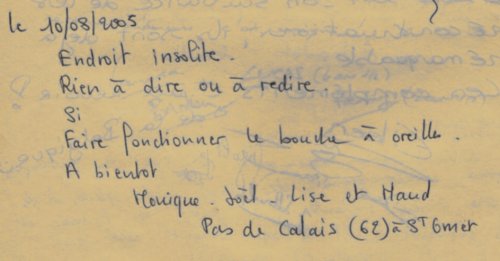 le 10/08/2005
Endroit insolite.
Rien à dire ou à redire.
Si
Faire fonctionner le bouche à oreille.
A bientot
Monique. Joël. Lise et Maud
Pas de Calais (62) à St Omer